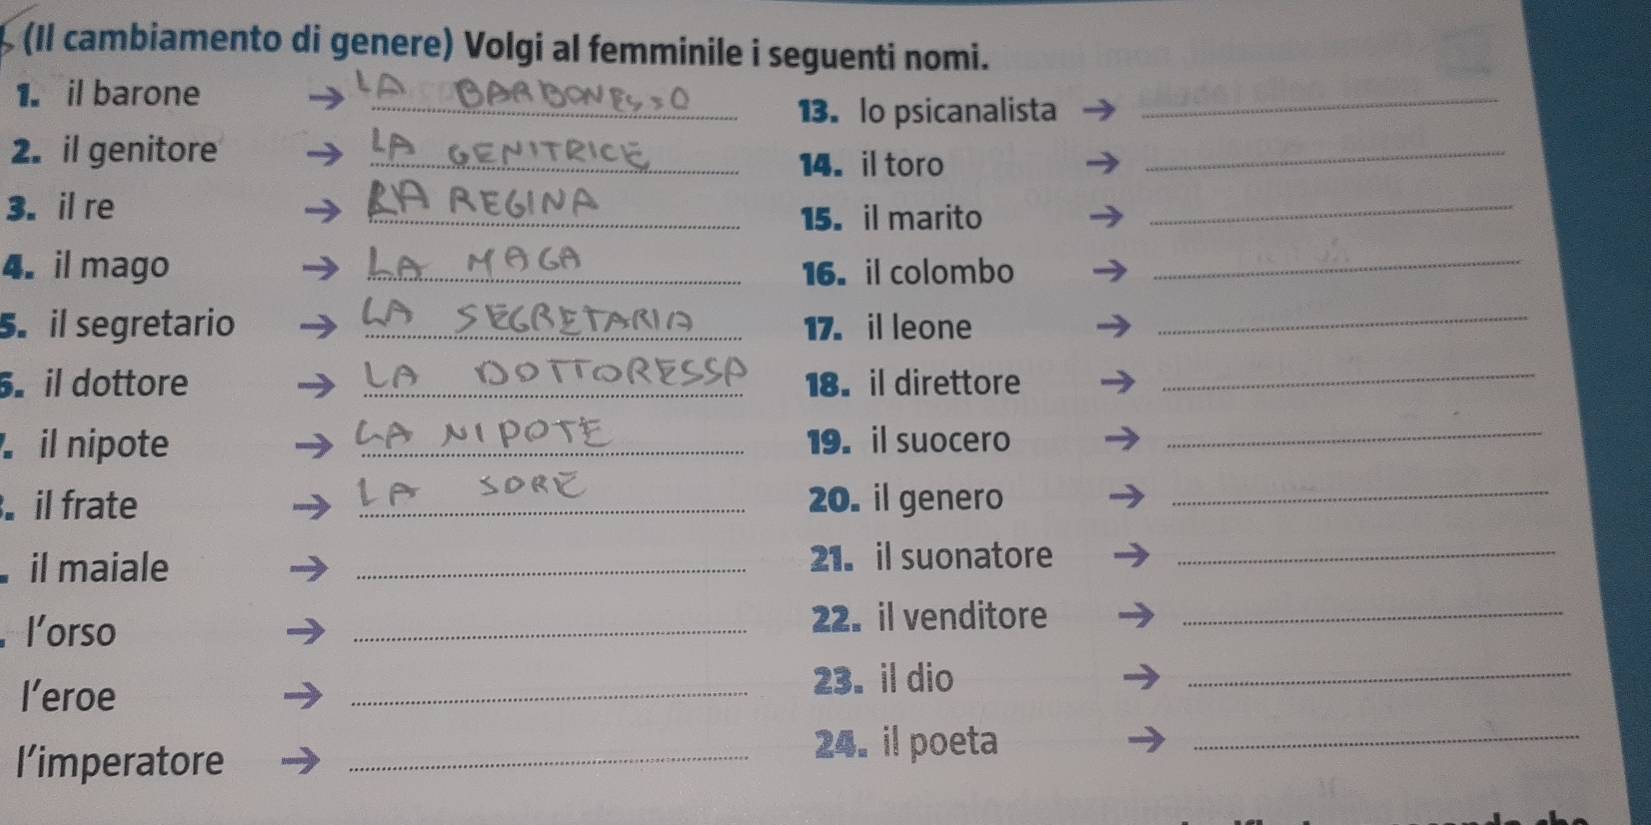 (Il cambiamento di genere) Volgi al femminile i seguenti nomi.
1. il barone → LA BARBONESSO
2. il genitore → LA GENITRICE
3. il re → LA REGINA
4. il mago → LA MAGA
5. il segretario → LA SEGRETARIA
6. il dottore → LA DOTTORESSA
7. il nipote → LA NIPOTE
8. il frate → LA SORE
. il maiale →
. l'orso →
l'eroe →
l'imperatore →
13. lo psicanalista →
14. il toro →
15. il marito →
16. il colombo →
17. il leone →
18. il direttore →
19. il suocero →
20. il genero →
21. il suonatore →
22. il venditore →
23. il dio →
24. il poeta →